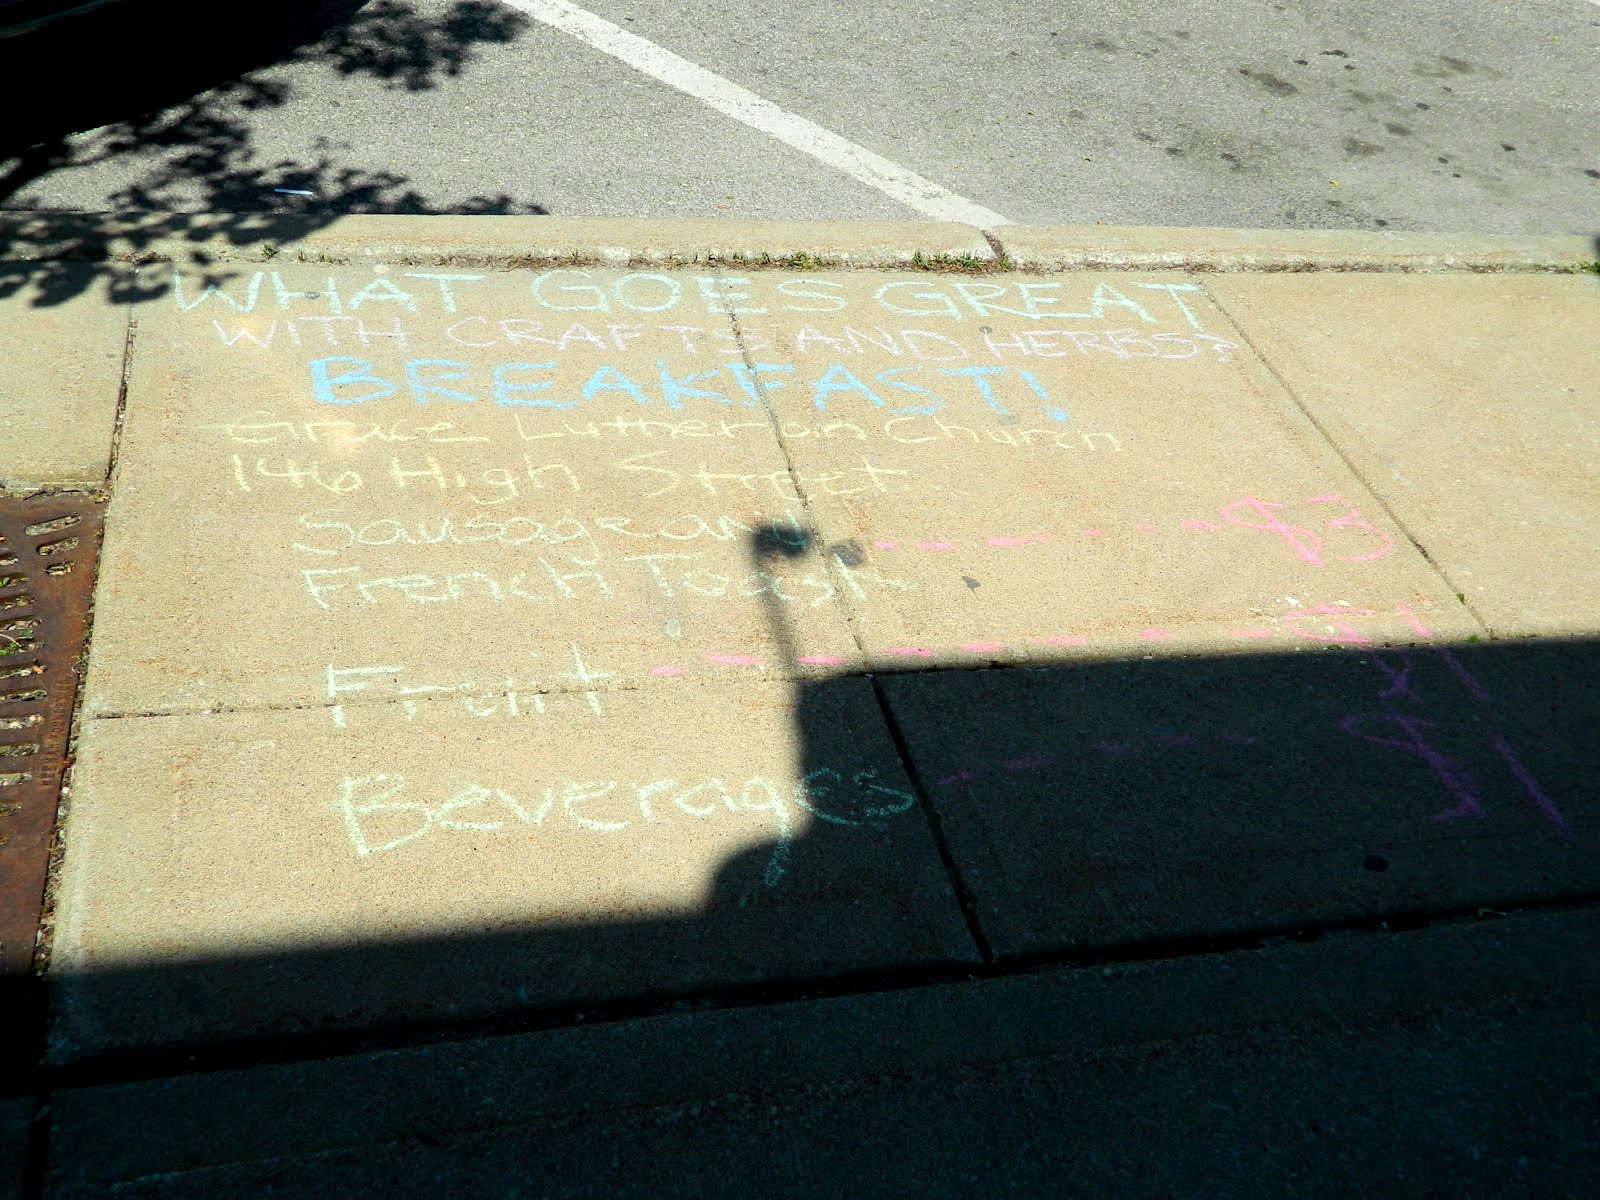 WHAT GOES GREAT
WITH CRAFTS AND HERBS?
BREAKFAST!
Grace Lutheran Church
146 High Street
Sausage and
French Toast ----- $3
Fruit -------- $1
Beverages ---- $1